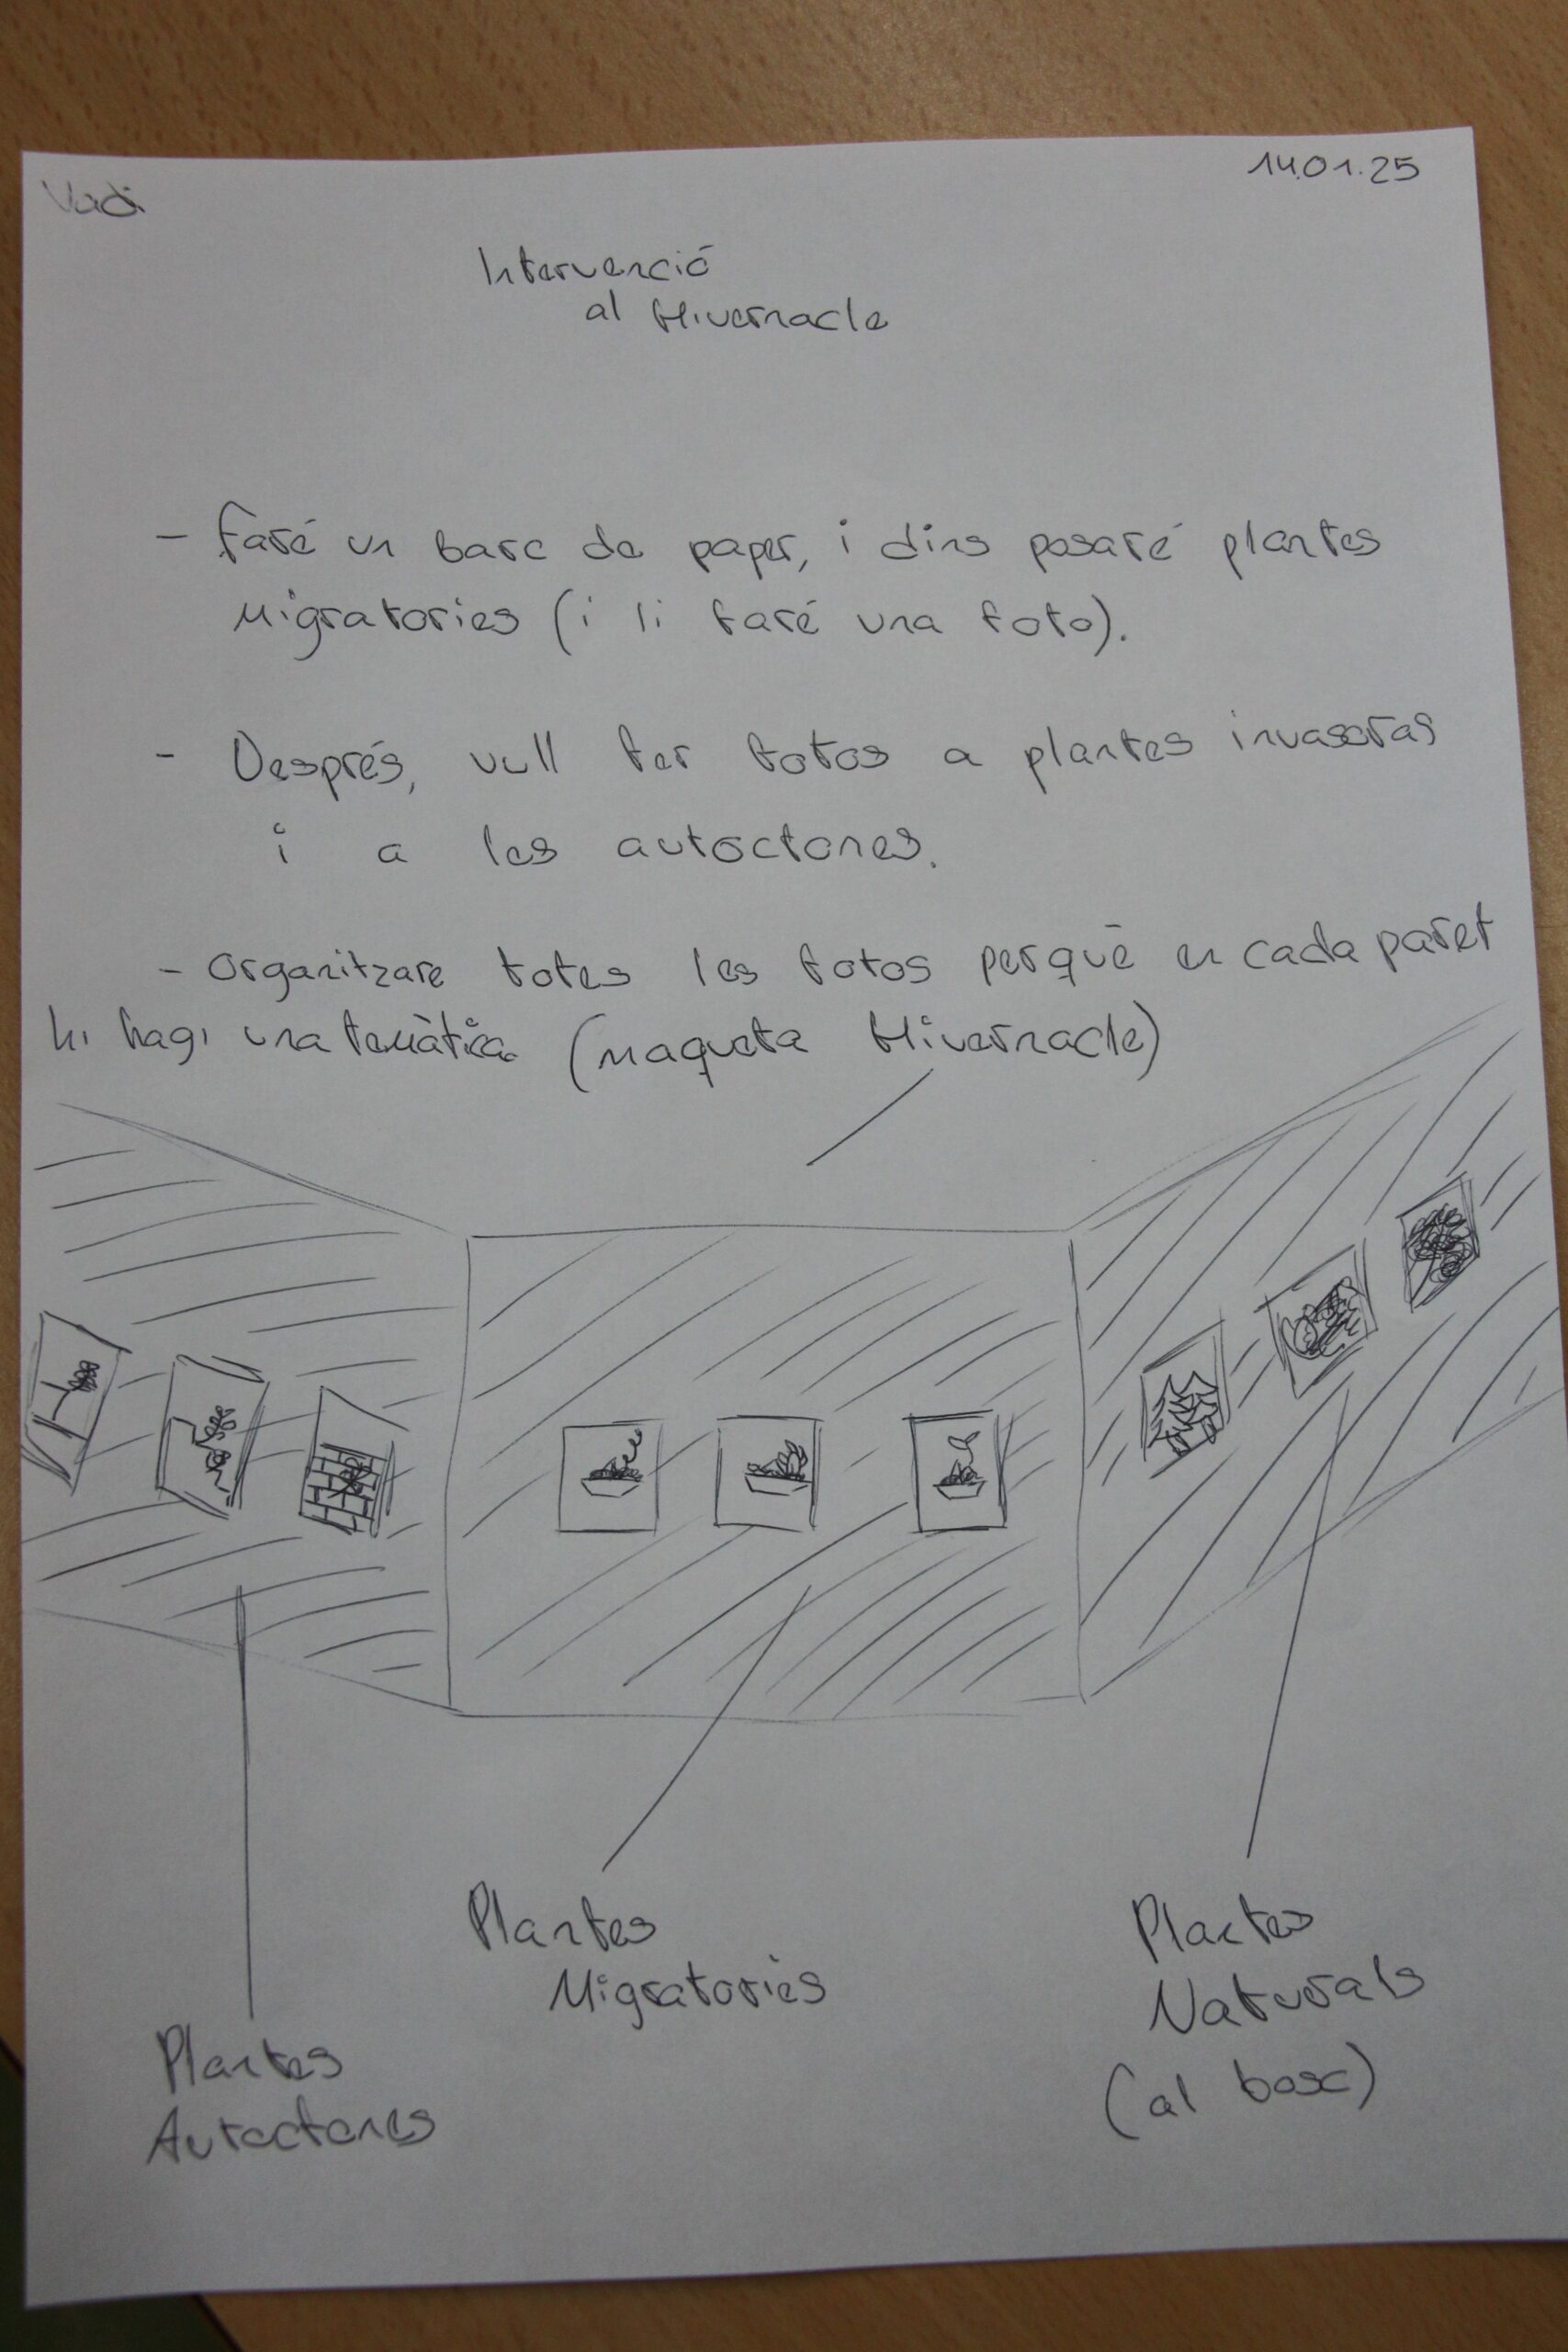 Vadi
14.01.25
Intervenció
al Hivernacle
- Faré un barc de paper, i dins posaré plantes
Migratories (i li faré una foto).
- Després, vull fer fotos a plantes invasoras
i a les autoctones.
- Organitzare totes les fotos perquè en cada paret
hi hagi una temàtica (maqueta Hivernacle)
Plantes
Migratories
Plantes
Naturals
(al bosc)
Plantes
Autoctones